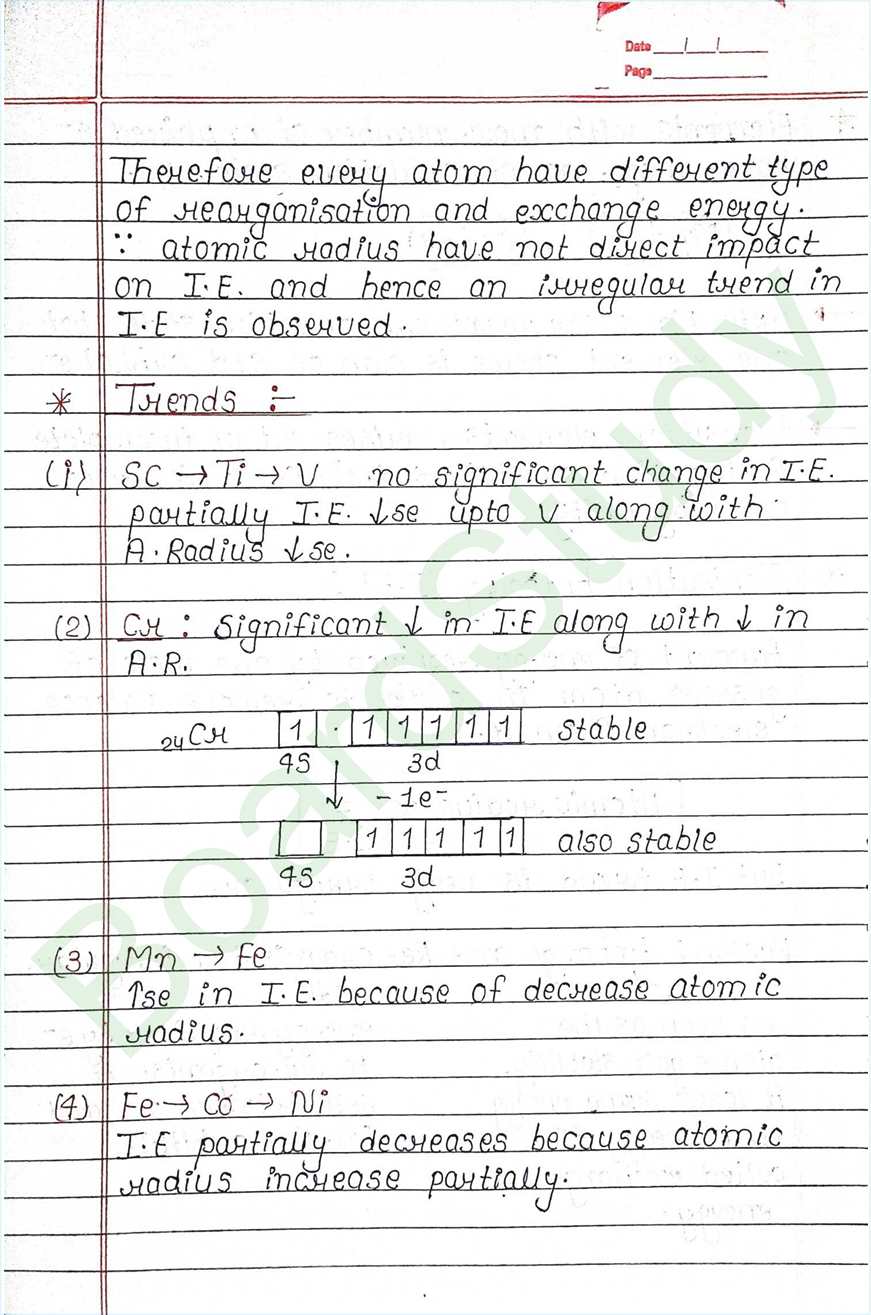 Date __/__/____
Page ________
Therefore every atom have different type
of rearganisation and exchange energy.
∵ atomic radius have not direct impact
on I.E. and hence an irregular trend in
I.E is observed.
* Trends :-
(i) SC → Ti → V no significant change in I.E.
partially I.E. ↓se upto V along with
A. Radius ↓se.
(2) Cr : Significant ↓ in I.E along with ↓ in
A.R.
₂₄Cr 1 . 1 1 1 1 1 stable
4S 3d
↓ - 1e⁻
1 1 1 1 1 also stable
4S 3d
(3) Mn → Fe
↑se in I.E. because of decrease atomic
radius.
(4) Fe → Co → Ni
I.E partially decreases because atomic
radius increase partially.
BoardStudy